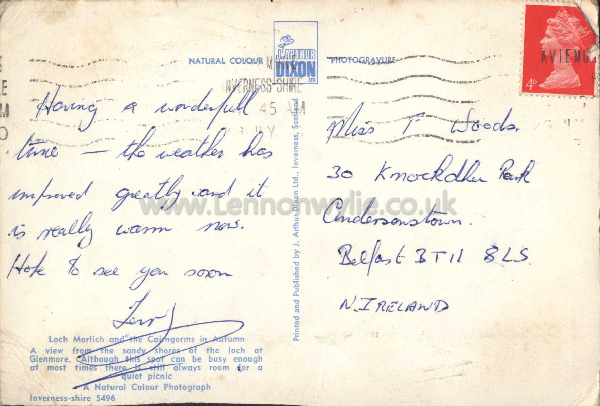 NATURAL COLOUR
J. ARTHUR
DIXON
PHOTOGRAVURE
AVIEMO
4D
INVERNESS-SHIRE
45 AM
Having a wonderfull
time — the weather has
improved greatly and it
is really warm now.
Hote to see you soon
Miss T Woods.
30 Knockdhu Park
Andersonstown.
Belfast BT11 8LS.
N. IRELAND
Printed and Published by J. Arthur Dixon Ltd., Inverness, Scotland
www.Lennonwylie.co.uk
Loch Morlich and the Cairngorms in Autumn
A view from the sandy shores of the loch at
Glenmore. Although this spot can be busy enough
at most times there is still always room for a
quiet picnic
A Natural Colour Photograph
Inverness-shire 5496